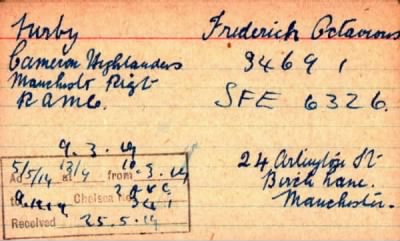 Furby Frederick Octavious
Cameron Highlanders 34691
Manchstr Regt SFE 6326.
RAMC.
9.3.19
5/5/19 13/4 10.3.19
at from
Chelsea
Received 25.5.19
24 Arlington St
Birch Lane.
Manchester.